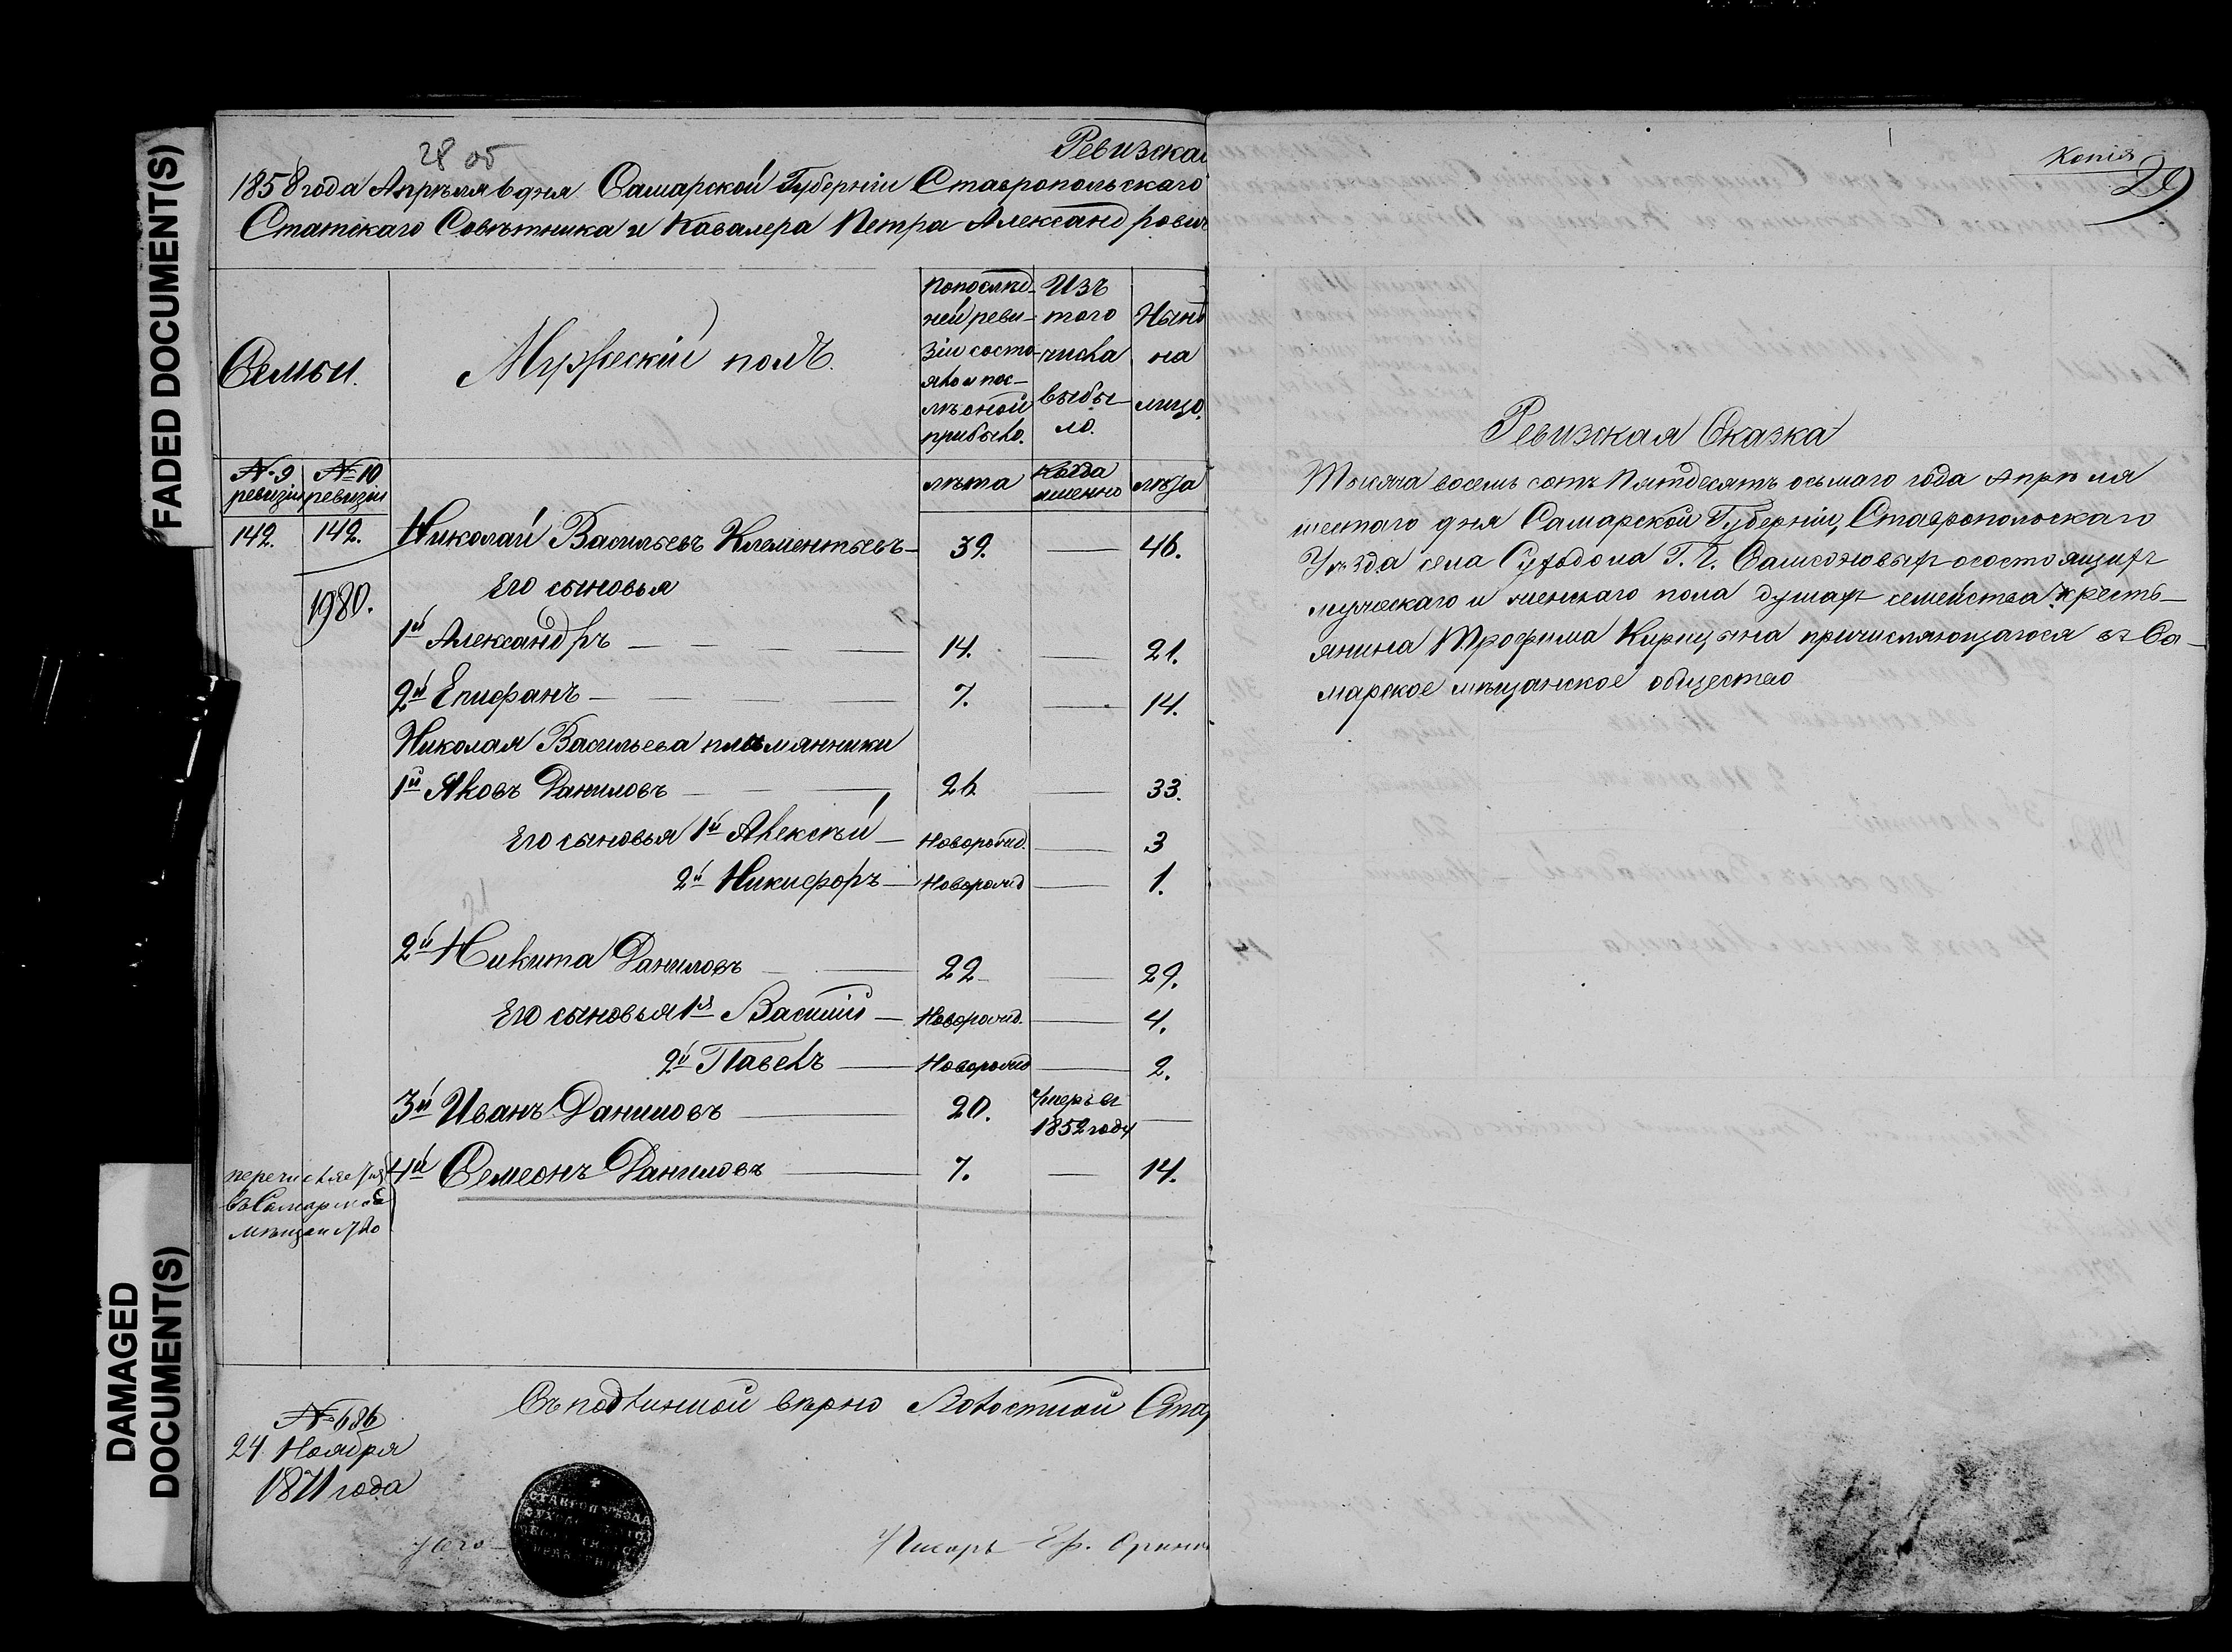 FADED DOCUMENT(S)
DAMAGED
DOCUMENT(S)
28 об
Ревизска
1858 года Апрѣля 6 дня Самарской Губерніи Ставропольскаго
Статскаго Совѣтника и Кавалера Петра Александрович
Семьи.
Мужескій полъ.
Попослѣд-
ней реви-
зіи состо-
яло и пос-
лѣ оной
прибыло.
Изъ
того
числа
выбы-
ло.
Нынѣ
на
лицо.
№ 9
ревизіи
№ 10
ревизіи
лѣта
Когда
именно
лѣта
142. 142. Николай Васильевъ Клементьевъ — 39. — 46.
1980.
Его сыновья
1й Александръ — 14. — 21.
2й Епифанъ — 7. — 14.
Николая Васильева племянники
1й Яковъ Даниловъ — 26 — 33.
Его сыновья 1й Алексѣй —Новорожд. — 3
2й Никифоръ — Новорожд — 1.
2й Никита Даниловъ — 22 — 29.
Его сыновья 1й Василій — Новорожд. — 4.
2й Павелъ — Новорожд — 2.
3й Иванъ Даниловъ — 20. Умеръ въ 1852 году —
перечисляется
въ Самарское
мѣщанство
4й Семеонъ Даниловъ — 7. — 14.
Съ подлинной вѣрно Волостной Ста
№ 686
24 Ноября
1871 года
СТАВРОП УѢЗДА
Писарь Еф.
Копія
29
Ревизская Сказка
Тысяча восемь сотъ Пятдесятъ осьмаго года Апрѣля
шестаго дня Самарской Губерніи, Ставропольскаго
Уѣзда села Суходола Г. Г. Самсоновыхъ осостоящихъ
мужескаго и женскаго пола душахъ семейства кресть-
янина Трофима Кирицына причисляющагося въ Са-
марское мѣщанское общество